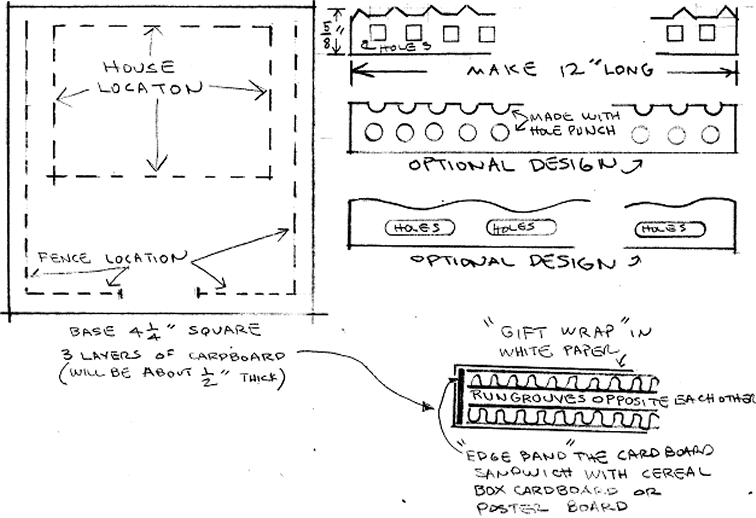 HOUSE
LOCATON
FENCE LOCATION
BASE 4 1/4" SQUARE
3 LAYERS OF CARDBOARD
(WILL BE ABOUT 1/2" THICK)
5/8"
HOLES
MAKE 12" LONG
MADE WITH
HOLE PUNCH
OPTIONAL DESIGN
HOLES HOLES HOLES
OPTIONAL DESIGN
"GIFT WRAP" IN
WHITE PAPER
RUN GROUVES OPPOSITE EACH OTHER
"EDGE BAND" THE CARDBOARD
SANDWICH WITH CEREAL
BOX CARDBOARD OR
POSTER BOARD